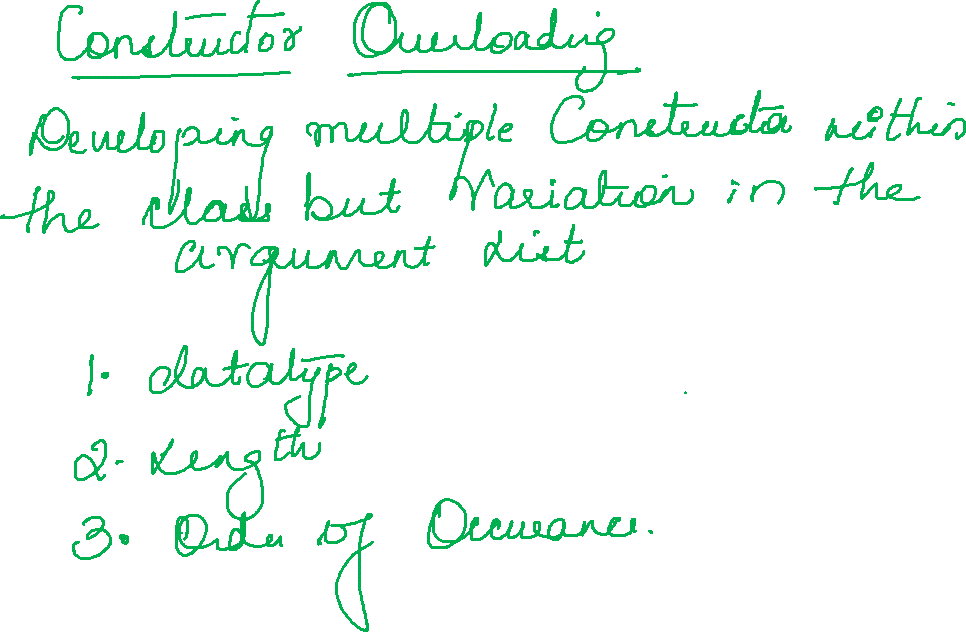 Constructor Overloading
Developing multiple Constructor within
the class but Variation in the
argument list
1. datatype
2. Length
3. Order of Occurance.